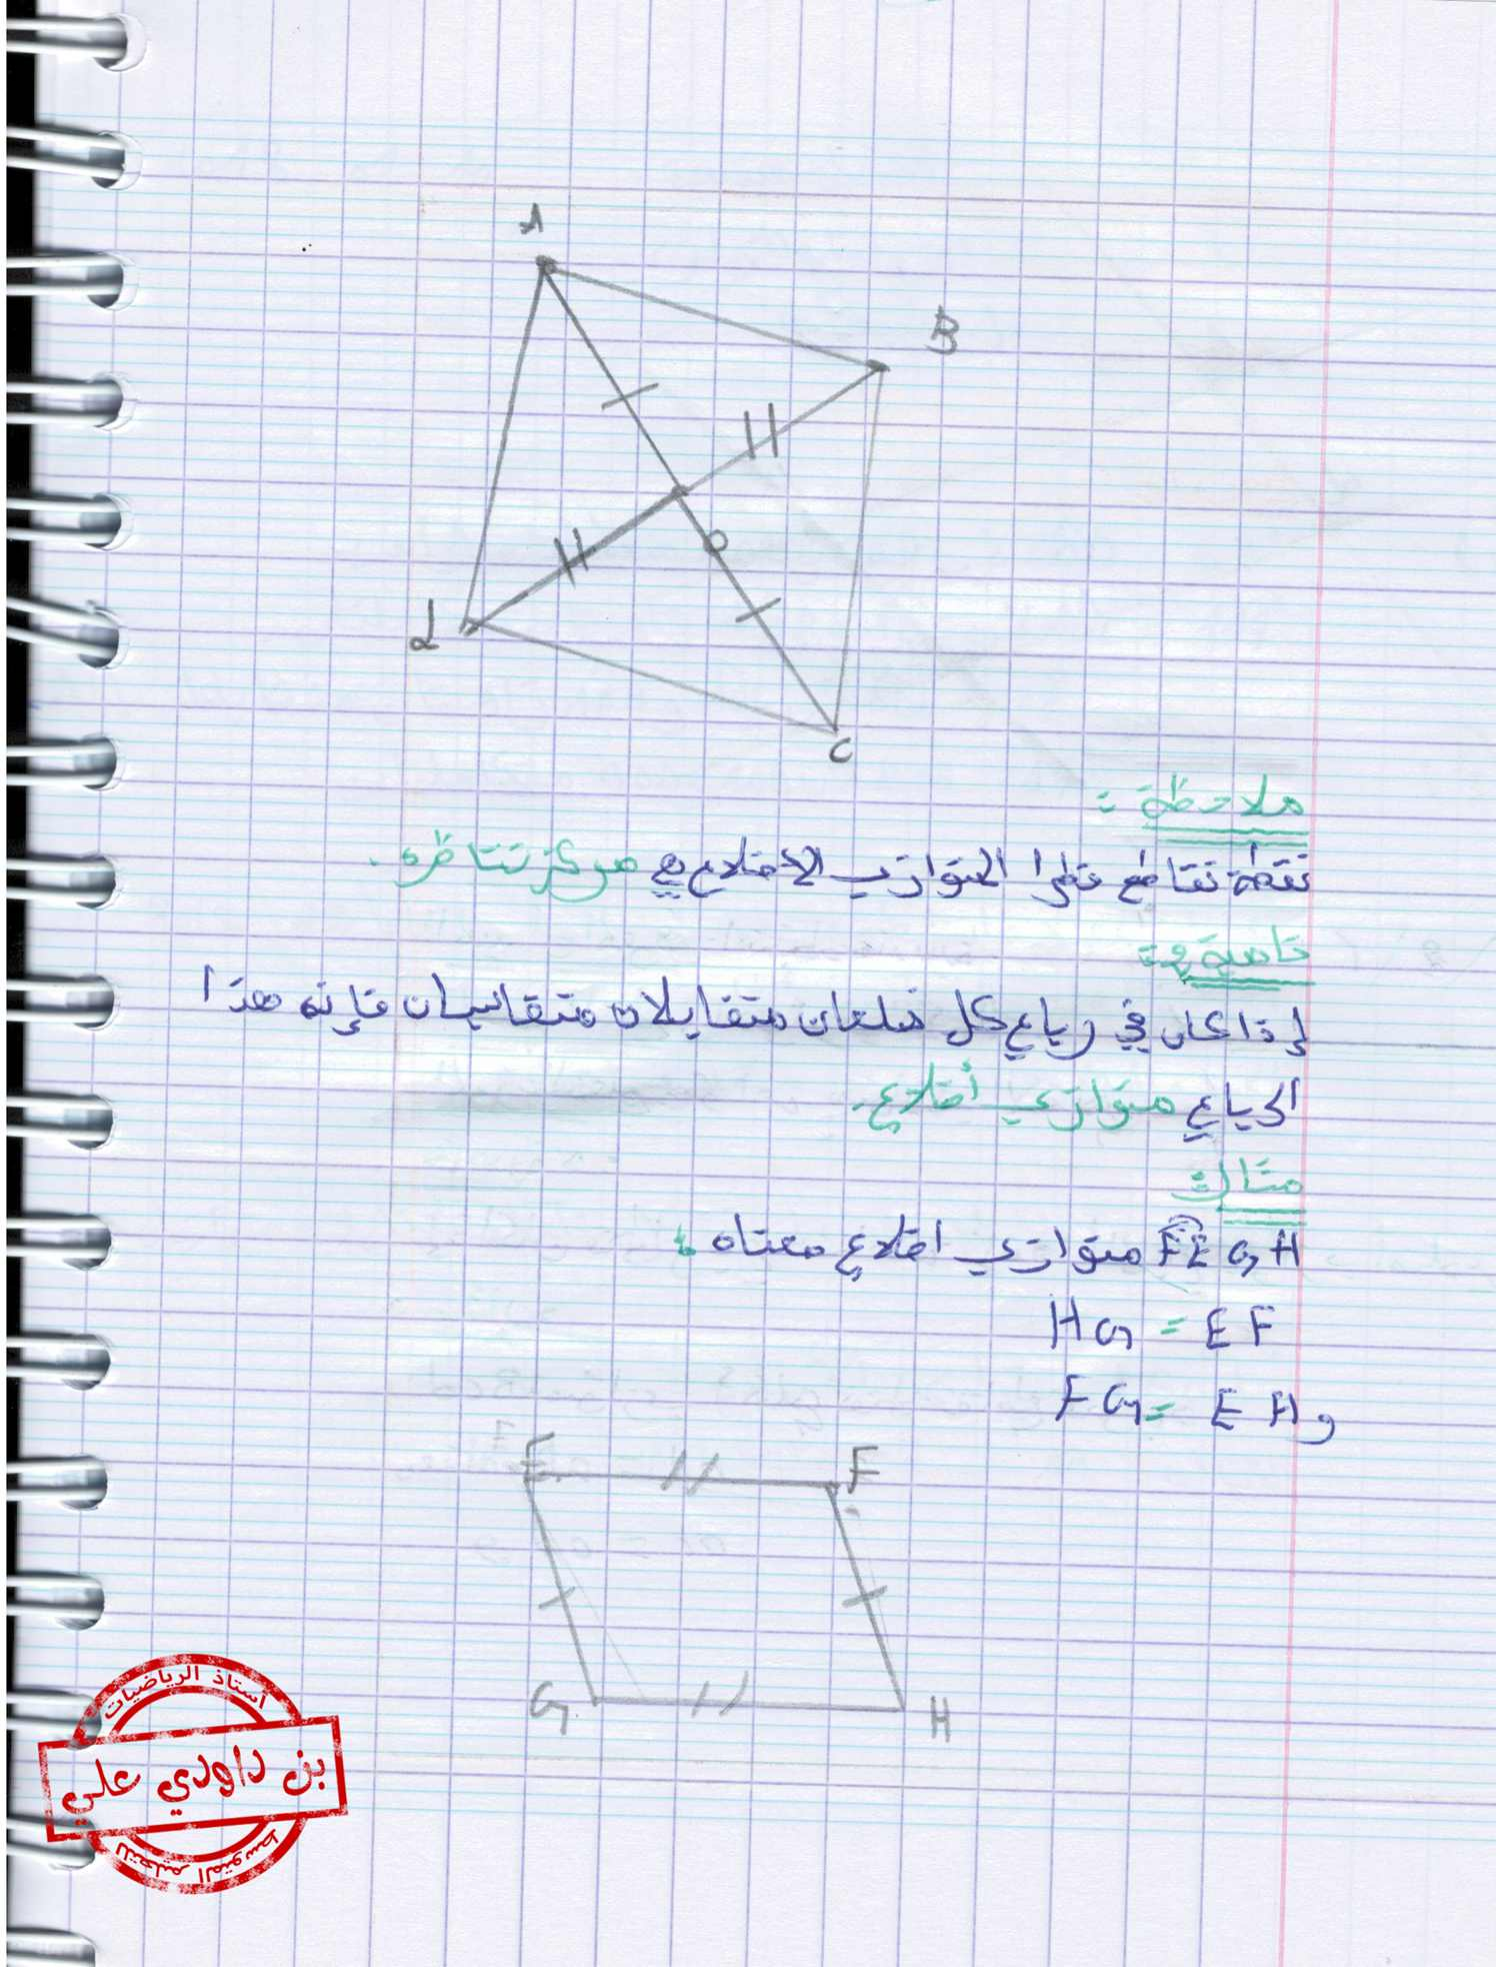 A
B
d
O
C
ملاحظة :
نقطة تقاطع قطرا المتوازي الأضلاع هي مركز تناظره.
خاصية 2:
إذا كان في رباعي كل ضلعان متقابلان متقايسان فإنه هذا
الرباعي متوازي أضلاع.
مثال:
FEGH متوازي اضلاع معناه :
HG = EF
و FG = EH
E F
G H
أستاذ الرياضيات
بن داودي علي
للتعليم المتوسط